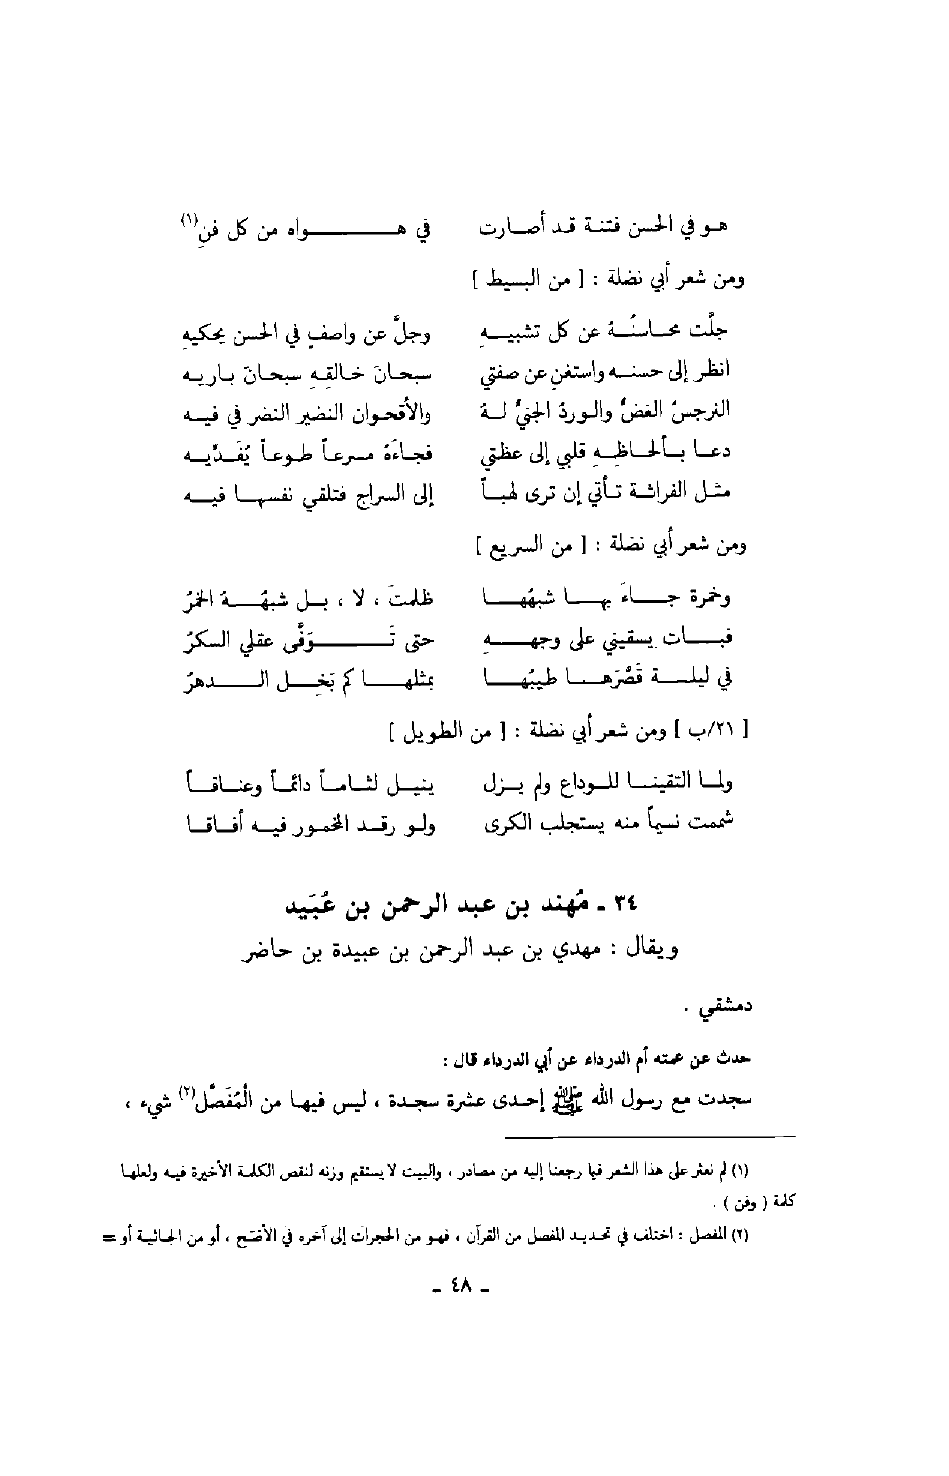 هو في الحسن فتنة قد أصارت في هواه من كل فنِ(١)
ومن شعر أبي نضلة : [ من البسيط ]
جلّت محاسنُهُ عن كل تشبيهِ وجلَّ عن واصفٍ في الحسن يحكيهِ
انظر إلى حسنه واستغنِ عن صفتي سبحانَ خالقهِ سبحانَ باريه
النرجسُ الغضُّ والوردُ الجنيُّ لهُ والأقحوان النضير النضر في فيه
دعا بألحاظهِ قلبي إلى عطبي فجاءَهُ مسرعاً طوعاً يُفَدِّيه
مثل الفراشة تأتي إن ترى لهباً إلى السراج فتلقي نفسها فيه
ومن شعر أبي نضلة : [ من السريع ]
وخمرة جاءَ بها شبهُها ظلمتَ ، لا ، بل شبهُهُ الخمرُ
فبات يسقيني على وجهه حتى تَوَفَّى عقلي السكرُ
في ليلة قَصَّرها طيبُها بمثلها كم بَخِل الدهرُ
[ ٢١/ب ] ومن شعر أبي نضلة : [ من الطويل ]
ولما التقينا للوداع ولم يزل ينيل لثاماً دائماً وعناقاً
شممت نسيماً منه يستجلب الكرى ولو رقد المخمور فيه أفاقا
٣٤ ـ مُهند بن عبد الرحمن بن عُبَيد
ويقال : مهدي بن عبد الرحمن بن عبيدة بن حاضر
دمشقي .
حدث عن عمته أم الدرداء عن أبي الدرداء قال :
سجدت مع رسول الله ﷺ إحدى عشرة سجدة ، ليس فيها من الْمُفَصَّل(٢) شيء ،
(١) لم نعثر على هذا الشعر فيما رجعنا إليه من مصادر ، والبيت لا يستقيم وزنه لنقص الكلمة الأخيرة فيه ولعلها
كلمة ( وفن ) .
(٢) المفصل : اختلف في تحديد المفصل من القرآن ، فهو من الحجرات إلى آخره في الأصح ، أو من الجاثية أو =
ـ ٤٨ ـ